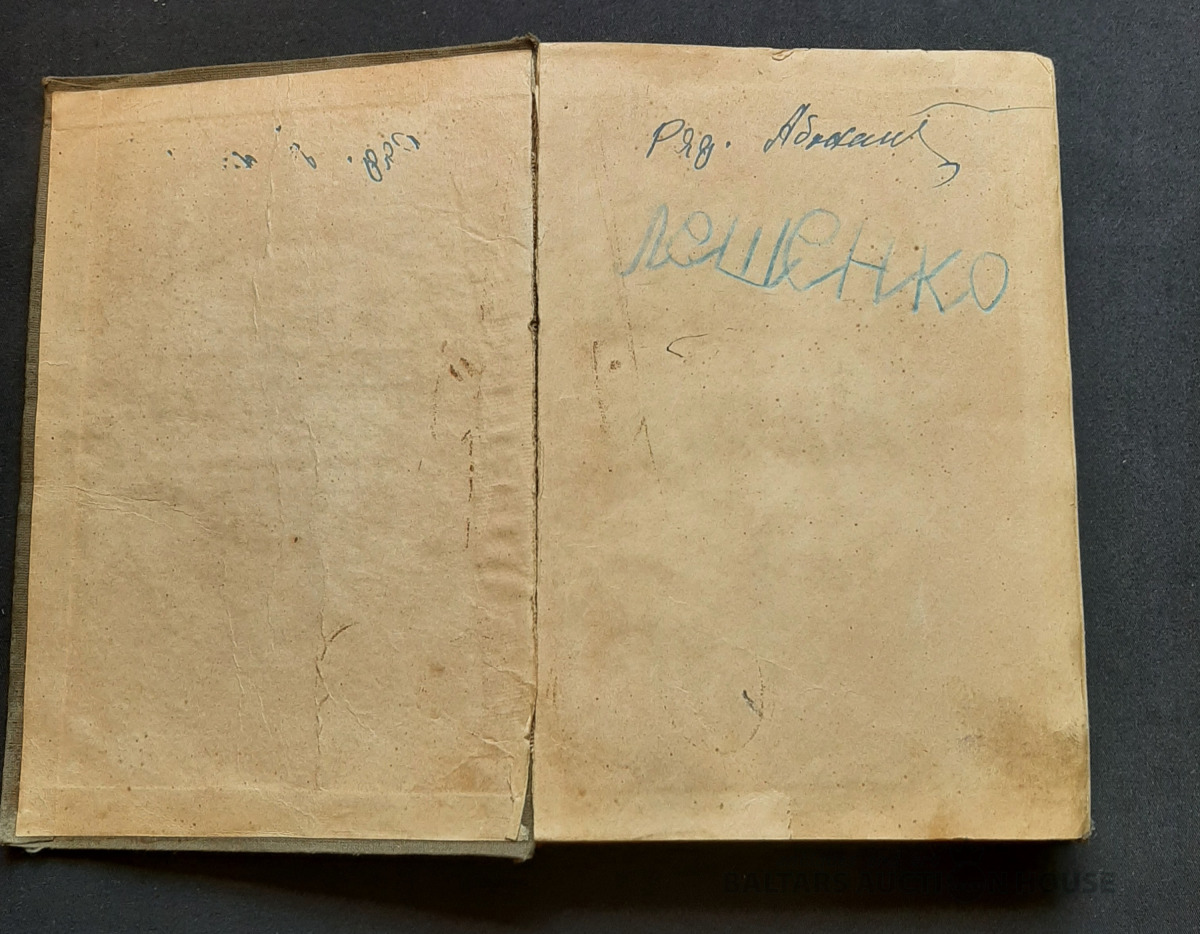 Ряд.
ЛЕЩЕНКО
BALTARS AUCTION HOUSE